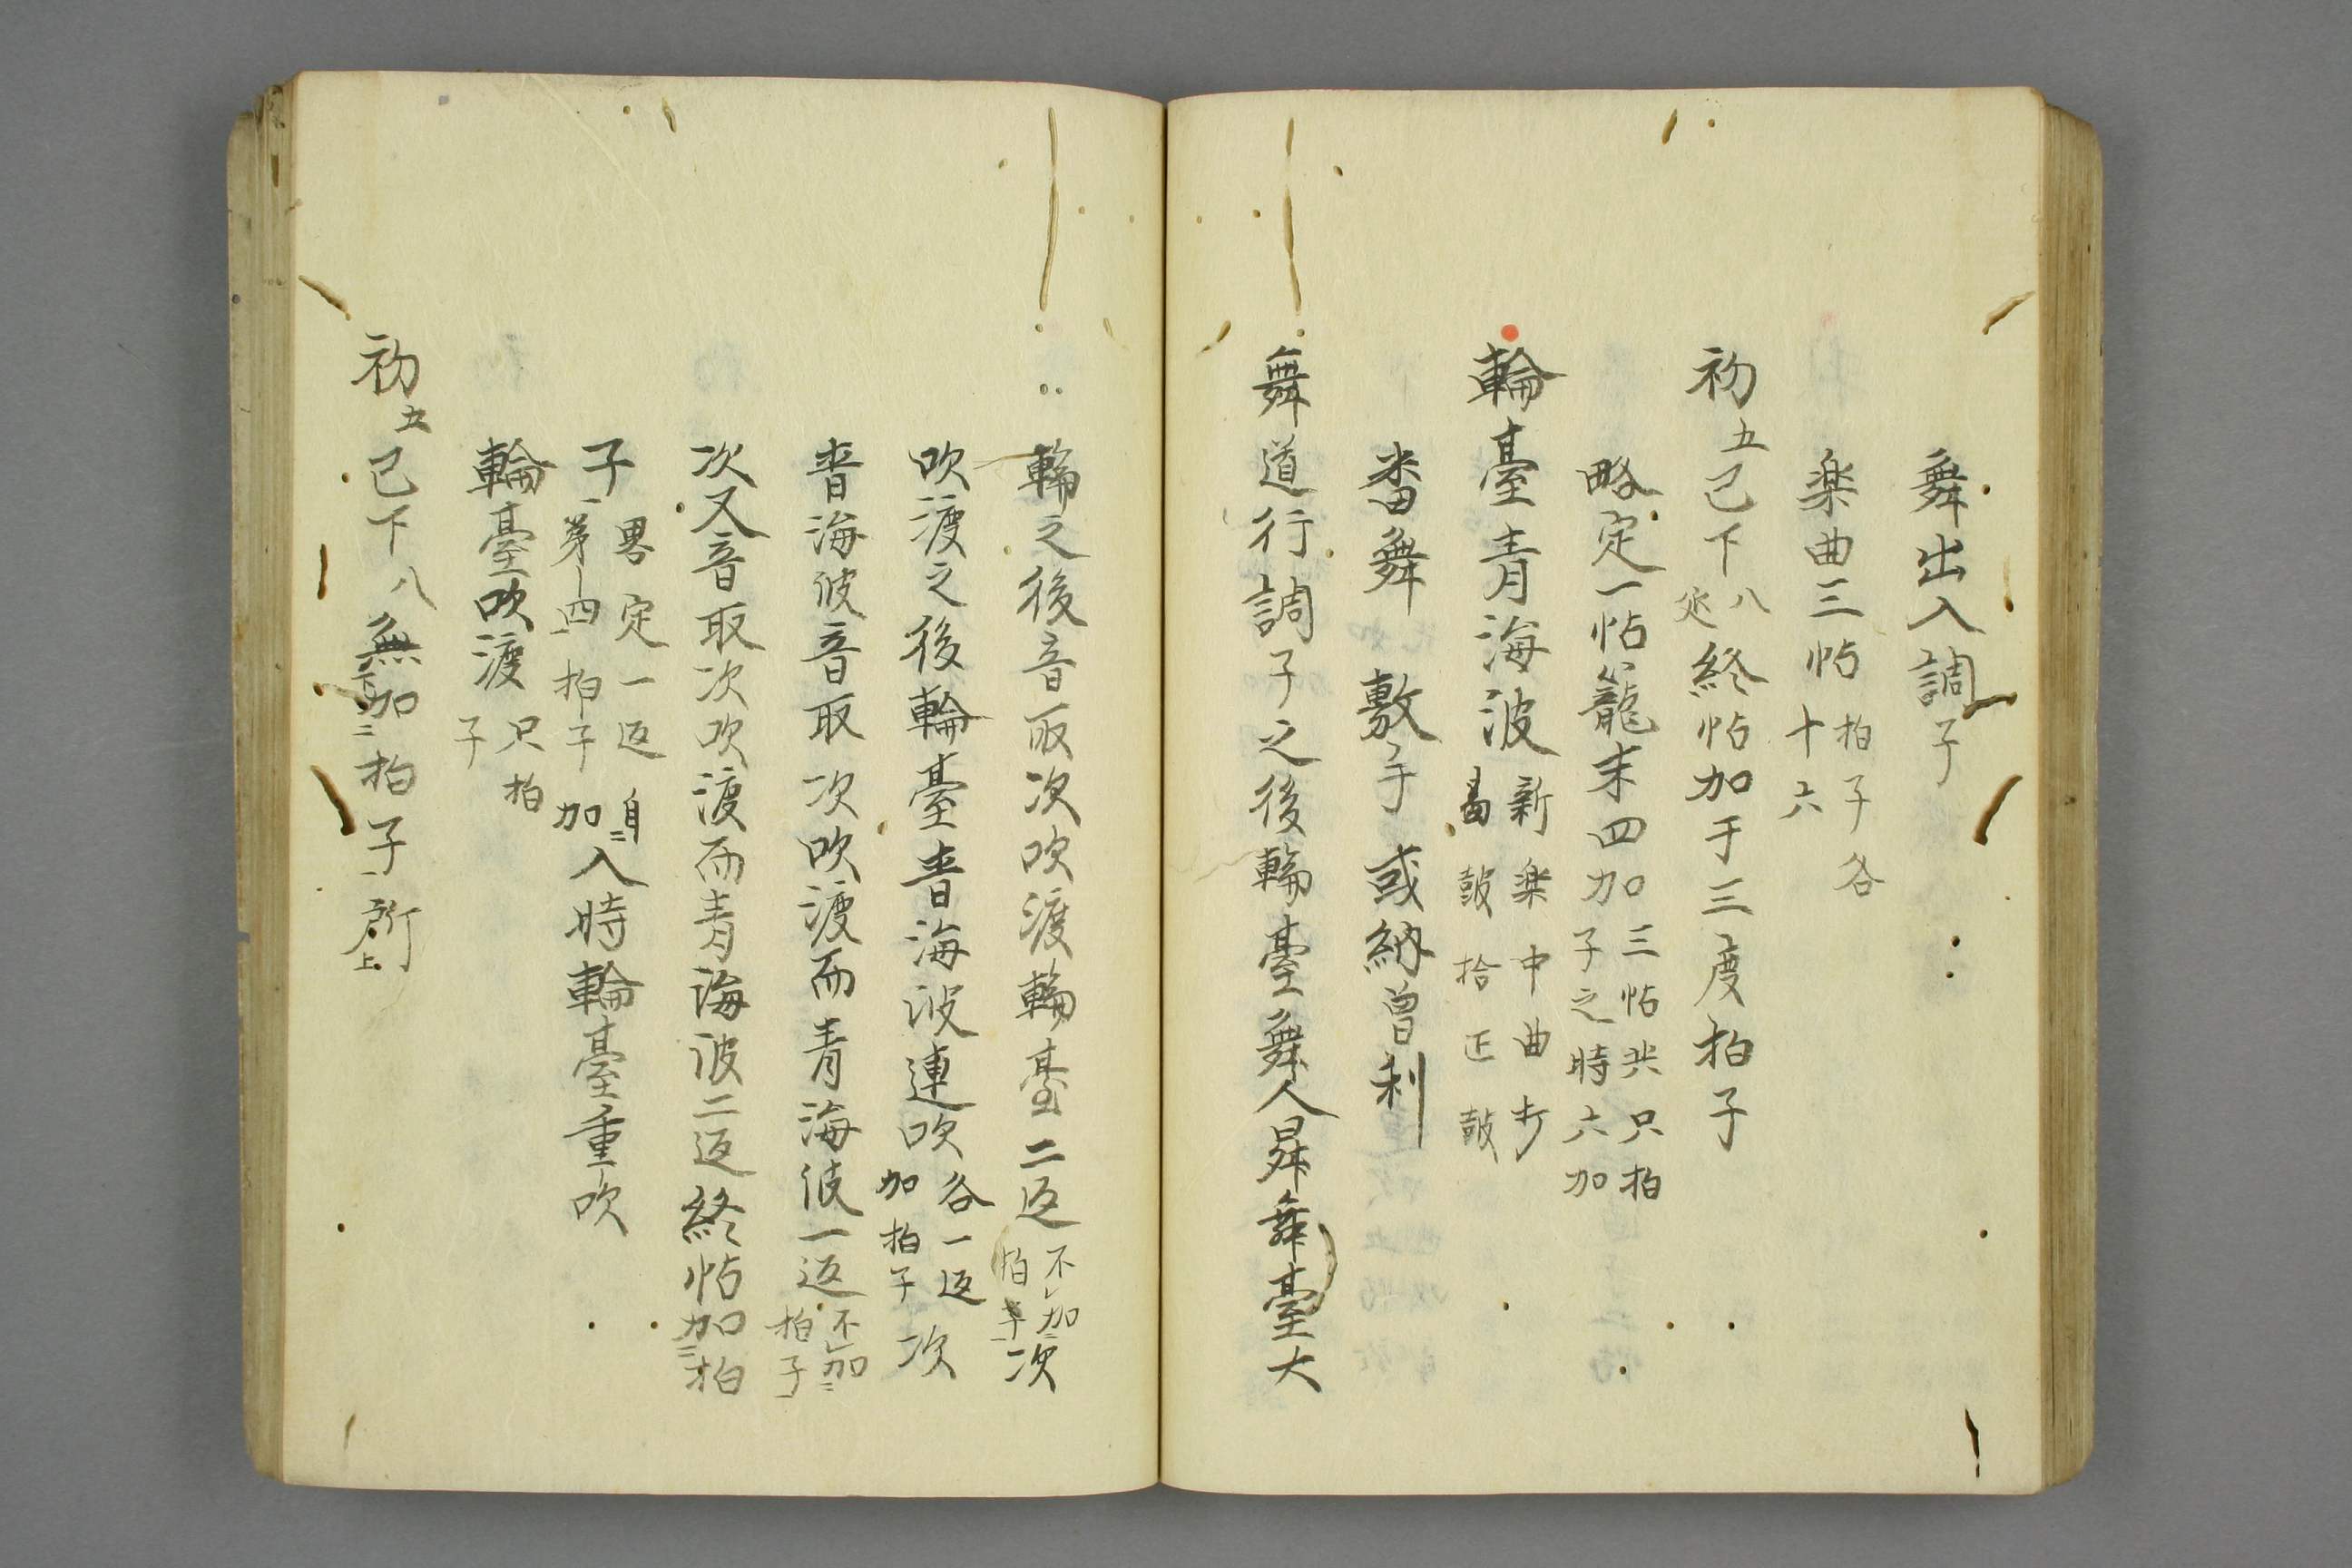 舞出入調子
楽曲三帖 拍子各十六
初五己下八 終帖加于三度拍子
略定一帖籠末四加 三帖共只拍子之時六加
輪臺青海波 新楽中曲 鼓拾正鼓
番舞 敷手 或納曽利
舞道行調子之後輪臺舞人昇舞臺大
輪之後音取次吹渡輪臺二返 不加拍子 次
吹渡之後輪臺青海波連吹 各一返加拍子 次
青海波音取次吹渡而青海波一返 不加拍子
次又音取次吹渡而青海波二返終帖加拍
子 畧定一返自第四拍子加 入時輪臺重吹
輪臺吹渡 只拍子
初五己下八無加拍子所